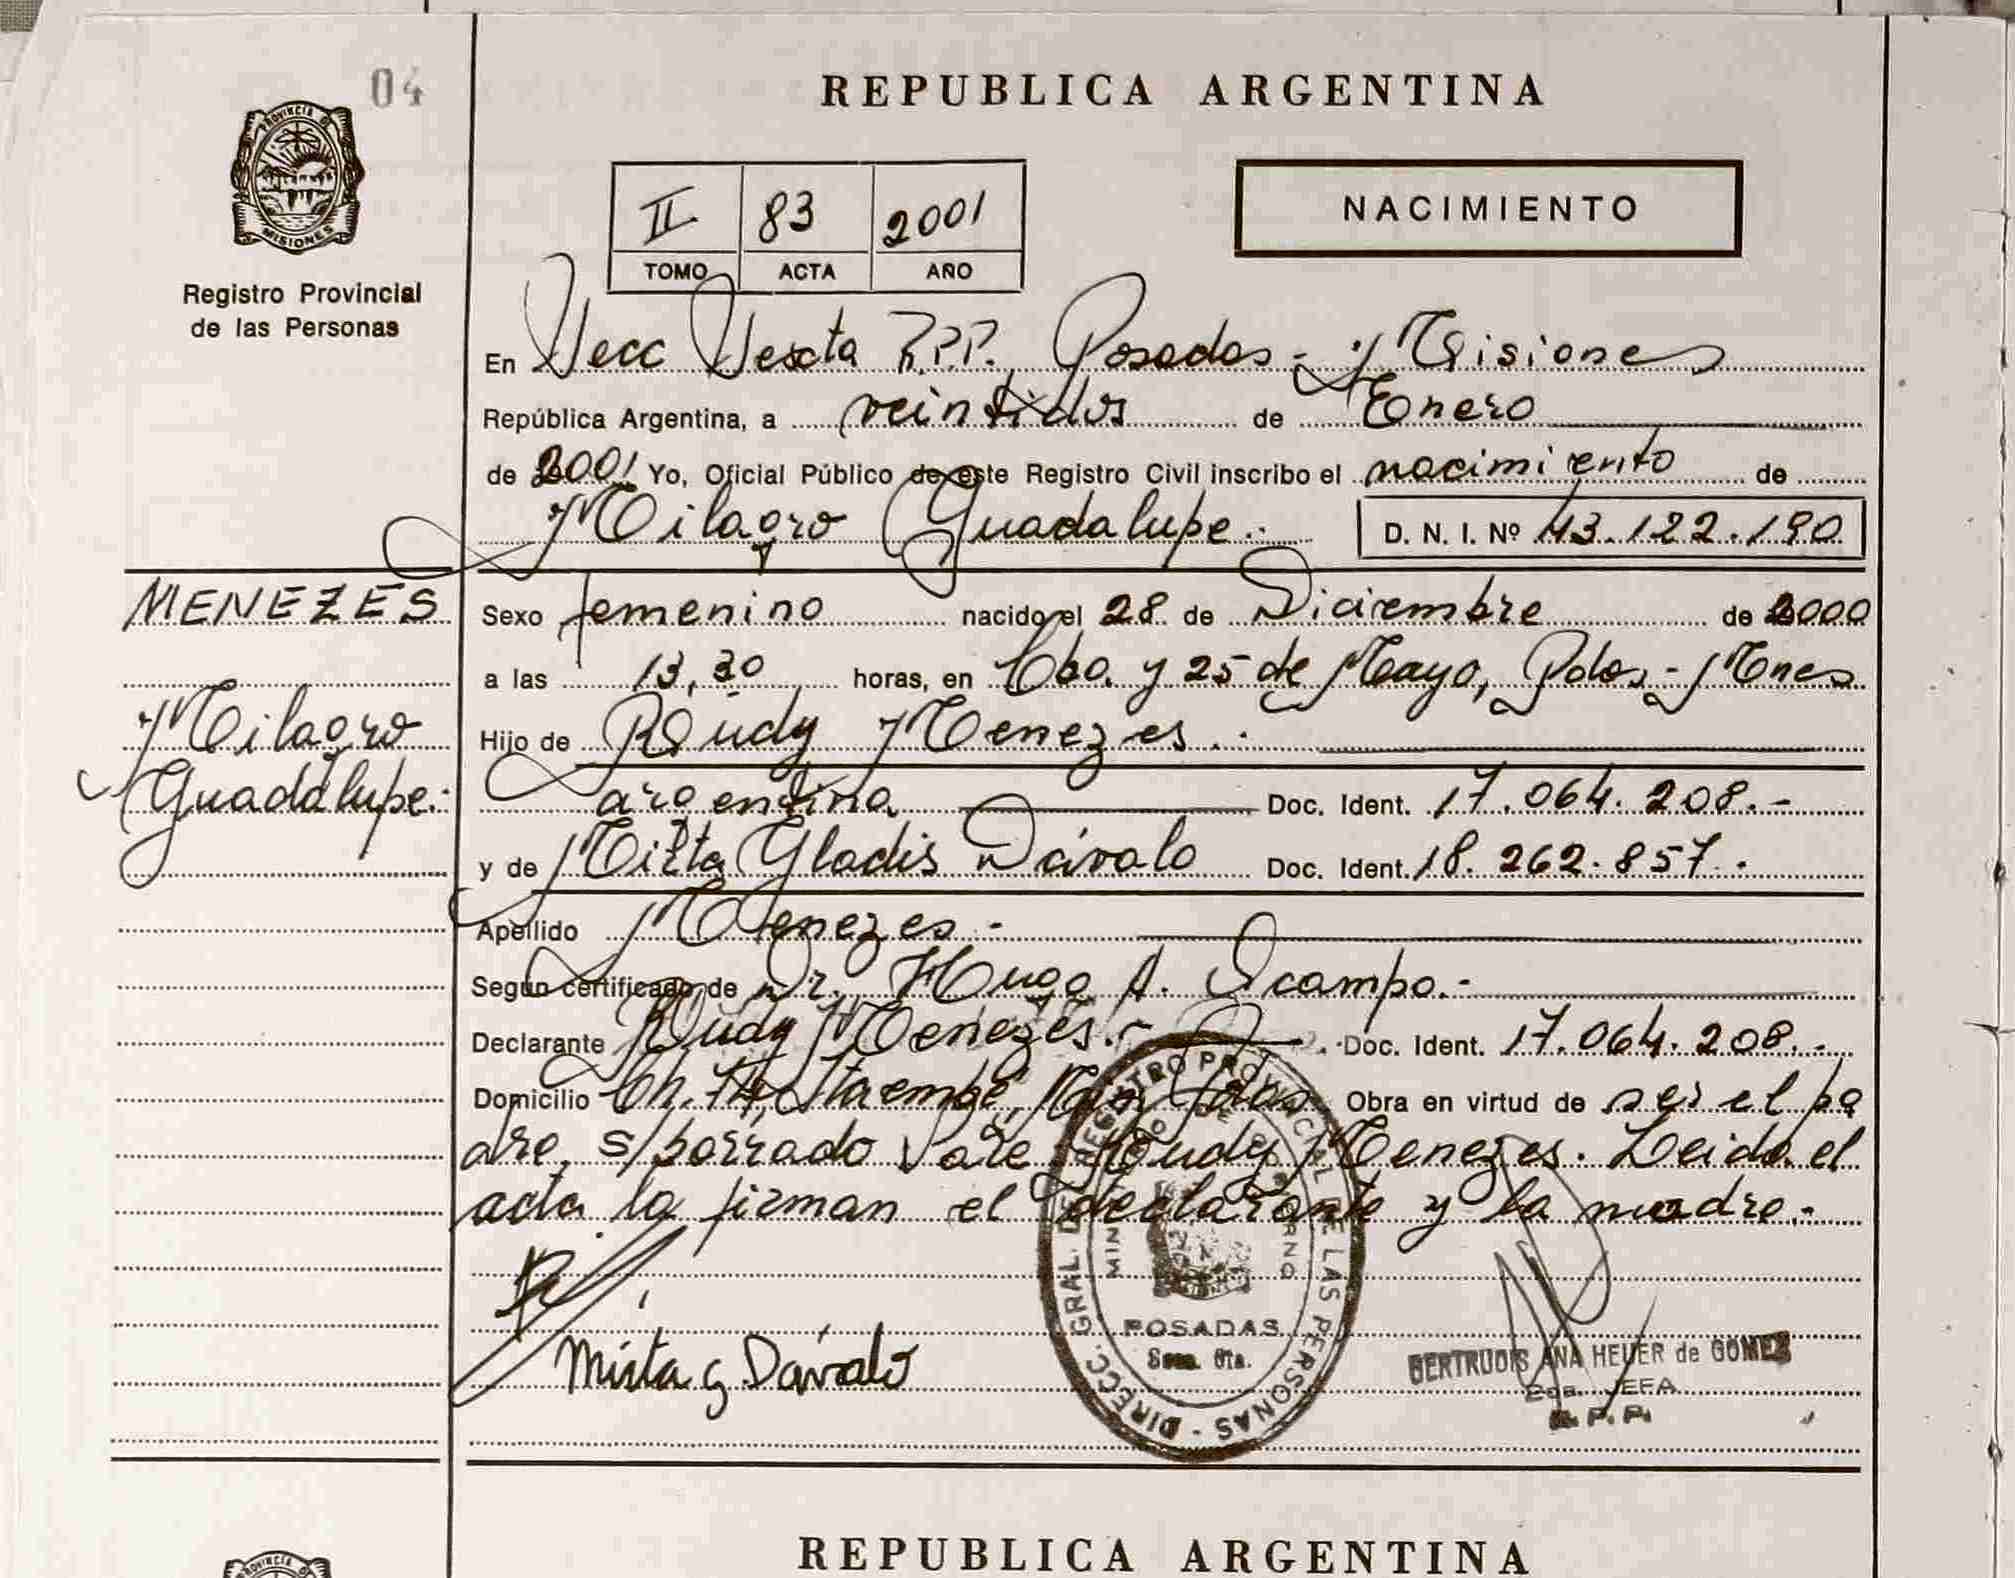 04
REPUBLICA ARGENTINA
PROVINCIA DE
MISIONES
Registro Provincial
de las Personas
II 83 2001
TOMO ACTA AÑO
NACIMIENTO
En Secc Sexta R.P.P. Posadas - Misiones
República Argentina, a veintidos de Enero
de 2001 Yo, Oficial Público de este Registro Civil inscribo el nacimiento de
Milagro Guadalupe.- D. N. I. Nº 43.122.190
MENEZES
Milagro
Guadalupe.-
Sexo femenino nacido el 28 de Diciembre de 2000
a las 13,30 horas, en Cbo. y 25 de Mayo, Pdas.- Mnes
Hijo de Rudy Menezes.-
argentina Doc. Ident. 17.064.208.-
y de Mirta Gladis Dávalo Doc. Ident. 18.262.857.
Apellido Menezes -
Según certificado de Dr. Hugo A. Ocampo.-
Declarante Rudy Menezes.- Doc. Ident. 17.064.208.-
Domicilio Ch. Itaembé, Pdas Obra en virtud de ser el pa
dre, s/borrado Vale Rudy Menezes. Leida el
acta la firman el declarante y la madre.-
Mirta G Dávalo
DIRECC. GRAL. DE REGISTRO PROVINCIAL DE LAS PERSONAS -
POSADAS
Secc. 6ta.
GERTRUDIS ANA HEUER de GOMEZ
JEFA
R. P. P.
REPUBLICA ARGENTINA
PROVINCIA DE